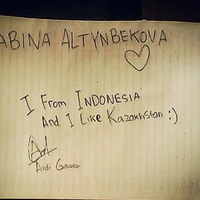 ABINA ALTYNBEKOVA
I From INDONESIA
And I Like Kazakhstan :)
Andi